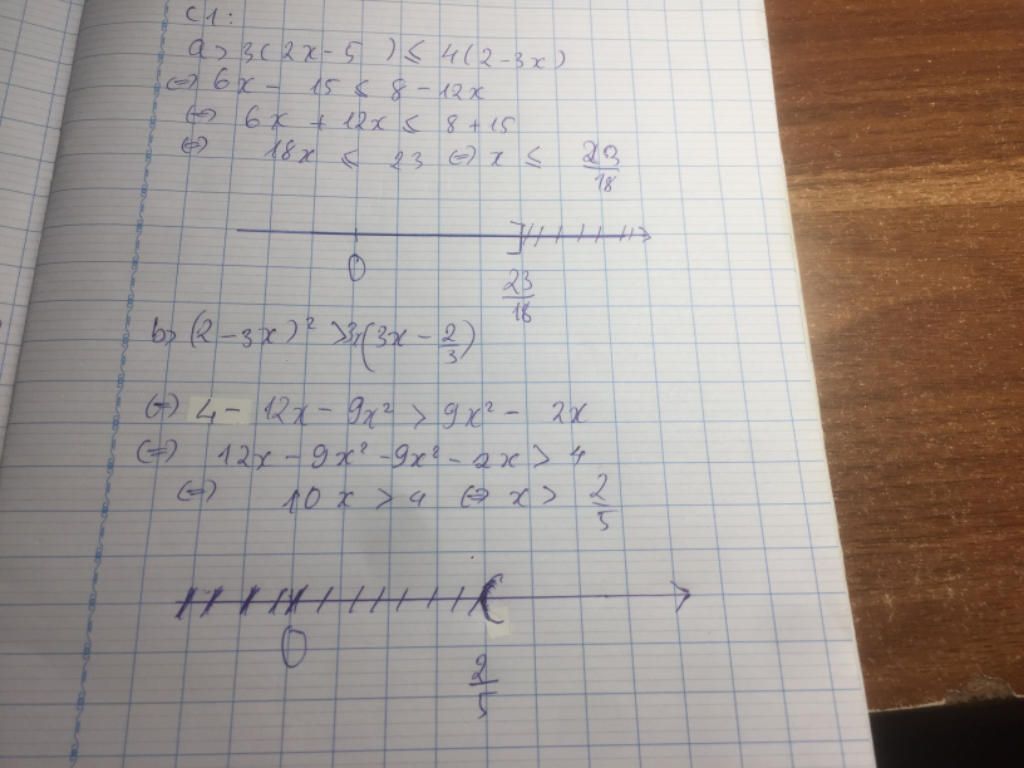 C1:
a> 3(2x-5) ≤ 4(2-3x)
<=> 6x - 15 ≤ 8 - 12x
<=> 6x + 12x ≤ 8 + 15
<=> 18x ≤ 23 <=> x ≤ 23/18
0 ]
23/18
b> (2-3x)² > (3x - 2/3)
<=> 4 - 12x - 9x² > 9x² - 2x
<=> 12x - 9x² - 9x² - 2x > 4
<=> 10x > 4 <=> x > 2/5
0 (
2/5